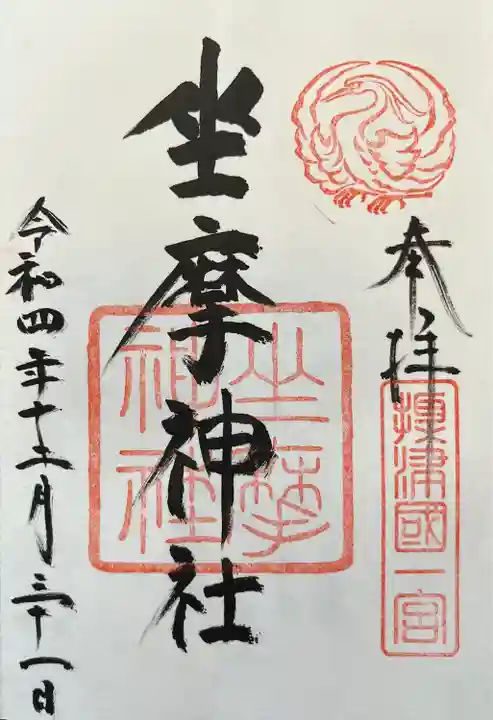 奉拝
摂津國一宮
坐摩神社
坐摩
神社
令和四年十二月三十一日